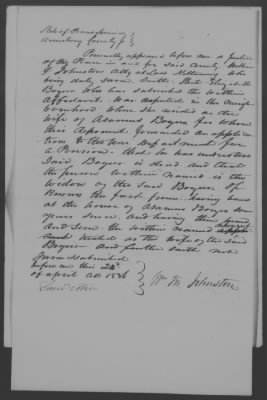 State of Pennsylvania
Armstrong County ss
Personally appeared before me a Justice
of the Peace in and for said County, William
F Johnston Atty at Law Kittanning who
being duly sworn Saith That Elizabeth
Boyer who has subscribed the within
Affidavit was reputed in the neigh
borhood where she resided as the
wife of Asamus Boyer for whom
this deponent forwarded an applica
tion to the War Department for
a Pension that he has understood
said Boyer is dead and that
the person within named is the
Widow of the said Boyer
knows the fact from having been
at the house of Asamus Boyer some
years since and having then
and seen the within named
treated as the wife of the said
Boyer and further saith not
Sworn & subscribed
before me this
of April AD 18
Wm F. Johnston